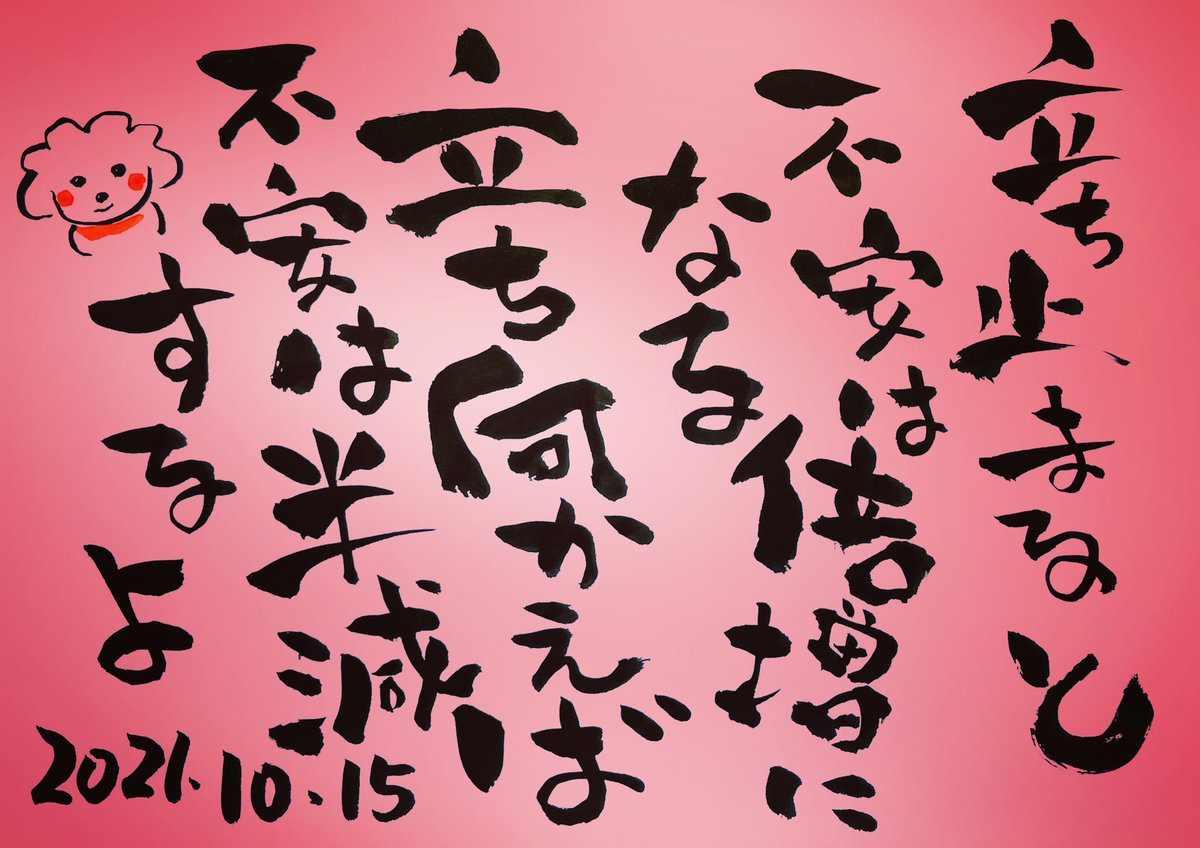 立ち止まると
不安は倍増に
なる
立ち向かえば
不安は半減
するよ
2021.10.15